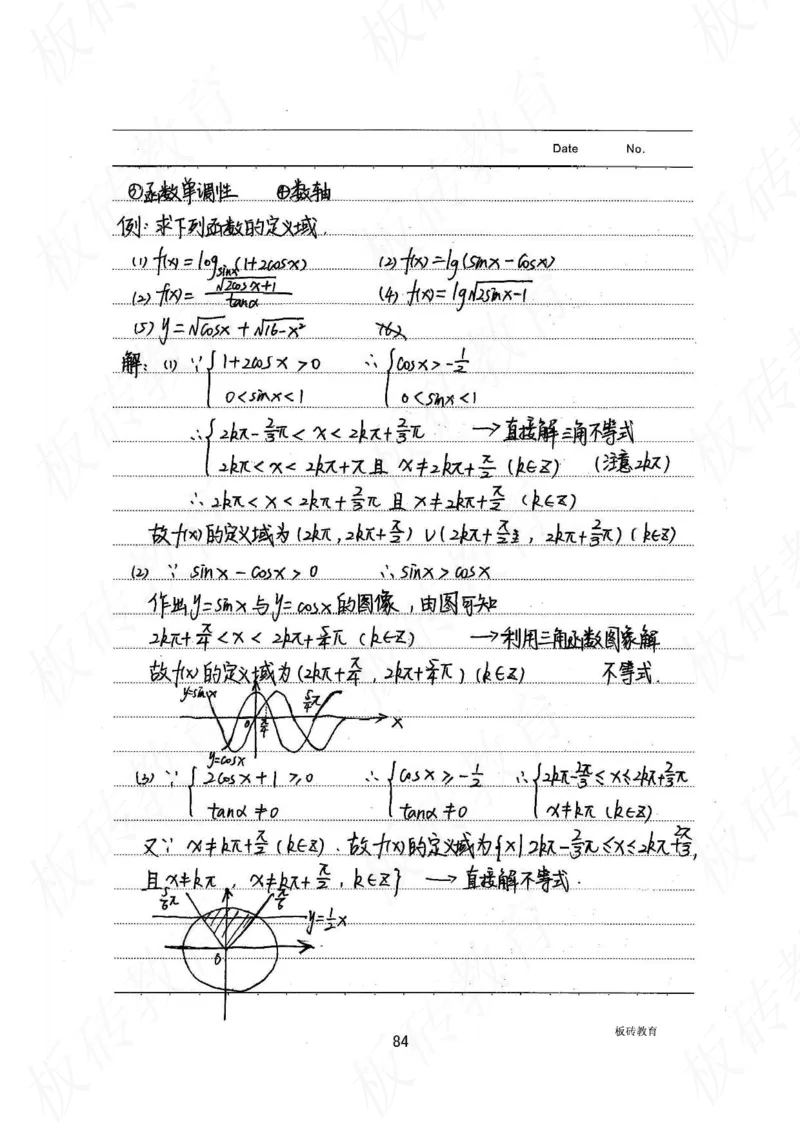 Date No.
③函数单调性 ④数轴
例:求下列函数的定义域.
(1) f(x)=log_sinx(1+2cosx) (2) f(x)=lg(sinx-cosx)
(2) f(x)=√(2cosx+1)/tanα (4) f(x)=lg√(2sinx-1)
(5) y=√cosx+√(16-x²)
解:(1) ∵{1+2cosx>0 ∴{cosx>-1/2
0<sinx<1 0<sinx<1
∴{2kπ-2/3π<x<2kπ+2/3π →直接解三角不等式
2kπ<x<2kπ+π且 x≠2kπ+π/2 (k∈Z) (注意2kπ)
∴2kπ<x<2kπ+2/3π 且 x≠2kπ+π/2 (k∈Z)
故f(x)的定义域为(2kπ,2kπ+π/2)∪(2kπ+π/2,2kπ+2/3π)(k∈Z)
(2) ∵ sinx-cosx>0 ∴sinx>cosx
作出y=sinx与y=cosx的图像,由图可知
2kπ+π/4<x<2kπ+5/4π (k∈Z) →利用三角函数图象解
故f(x)的定义域为(2kπ+π/4,2kπ+5/4π)(k∈Z) 不等式.
y=sinx 5/4π
0 π/4 x
y=cosx
(3) ∵{2cosx+1≥0 ∴{cosx≥-1/2 ∴{2kπ-2π/3≤x≤2kπ+2/3π
tanα≠0 tanα≠0 x≠kπ (k∈Z)
又∵ x≠kπ+π/2(k∈Z).故f(x)的定义域为{x|2kπ-2/3π≤x≤2kπ+2π/3,
且x≠kπ,x≠kπ+π/2,k∈Z} →直接解不等式.
5/6π π/6
y=1/2x
0
板砖教育
84